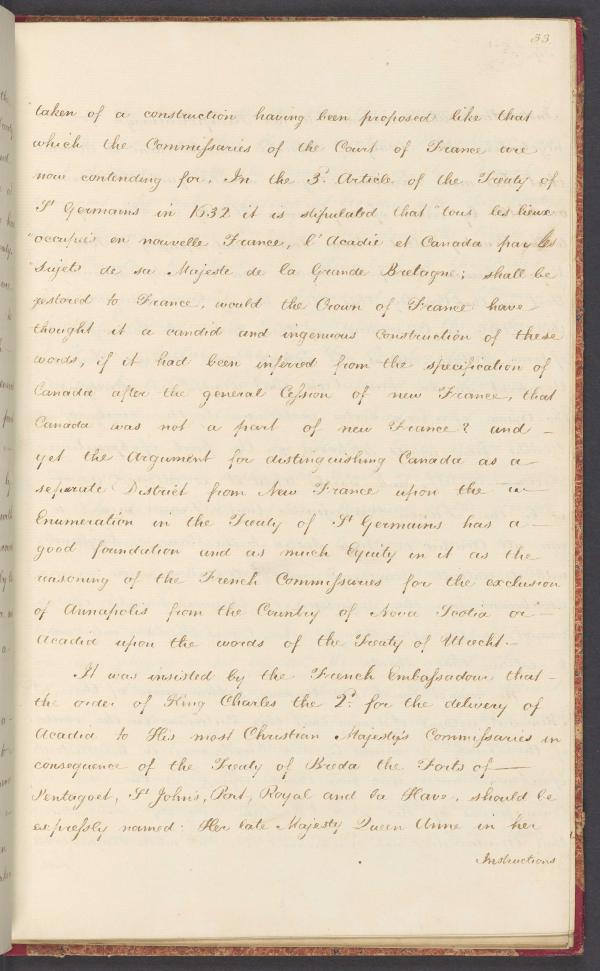 33
taken of a construction having been proposed like that
which the Commissaries of the Court of France are
now contending for. In the 3d. Article of the Treaty of
St Germains in 1632 it is stipulated that "tous les lieux
"occupés en nouvelle France, l'Acadie et Canada par les
"Sujets de sa Majeste de la Grande Bretagne; shall be
restored to France, would the Crown of France have
thought it a candid and ingenuous construction of these
words, if it had been inferred from the specification of
Canada after the general Cession of new France, that
Canada was not a part of new France? and -
yet the Argument for distinguishing Canada as a
seperate District from New France upon the
Enumeration in the Treaty of St Germains has a -
good foundation and as much Equity in it as the
reasoning of the French Commissaries for the exclusion
of Annapolis from the Country of Nova Scotia or -
Acadia upon the words of the Treaty of Utrecht. -
It was insisted by the French Embassadour that -
the order of King Charles the 2d. for the delivery of
Acadia to His most Christian Majesty's Commissaries in
consequence of the Treaty of Breda the Forts of -
Pentagoet, St John's, Port, Royal and la Have, should be
expressly named: Her late Majesty Queen Anne in her
Instructions